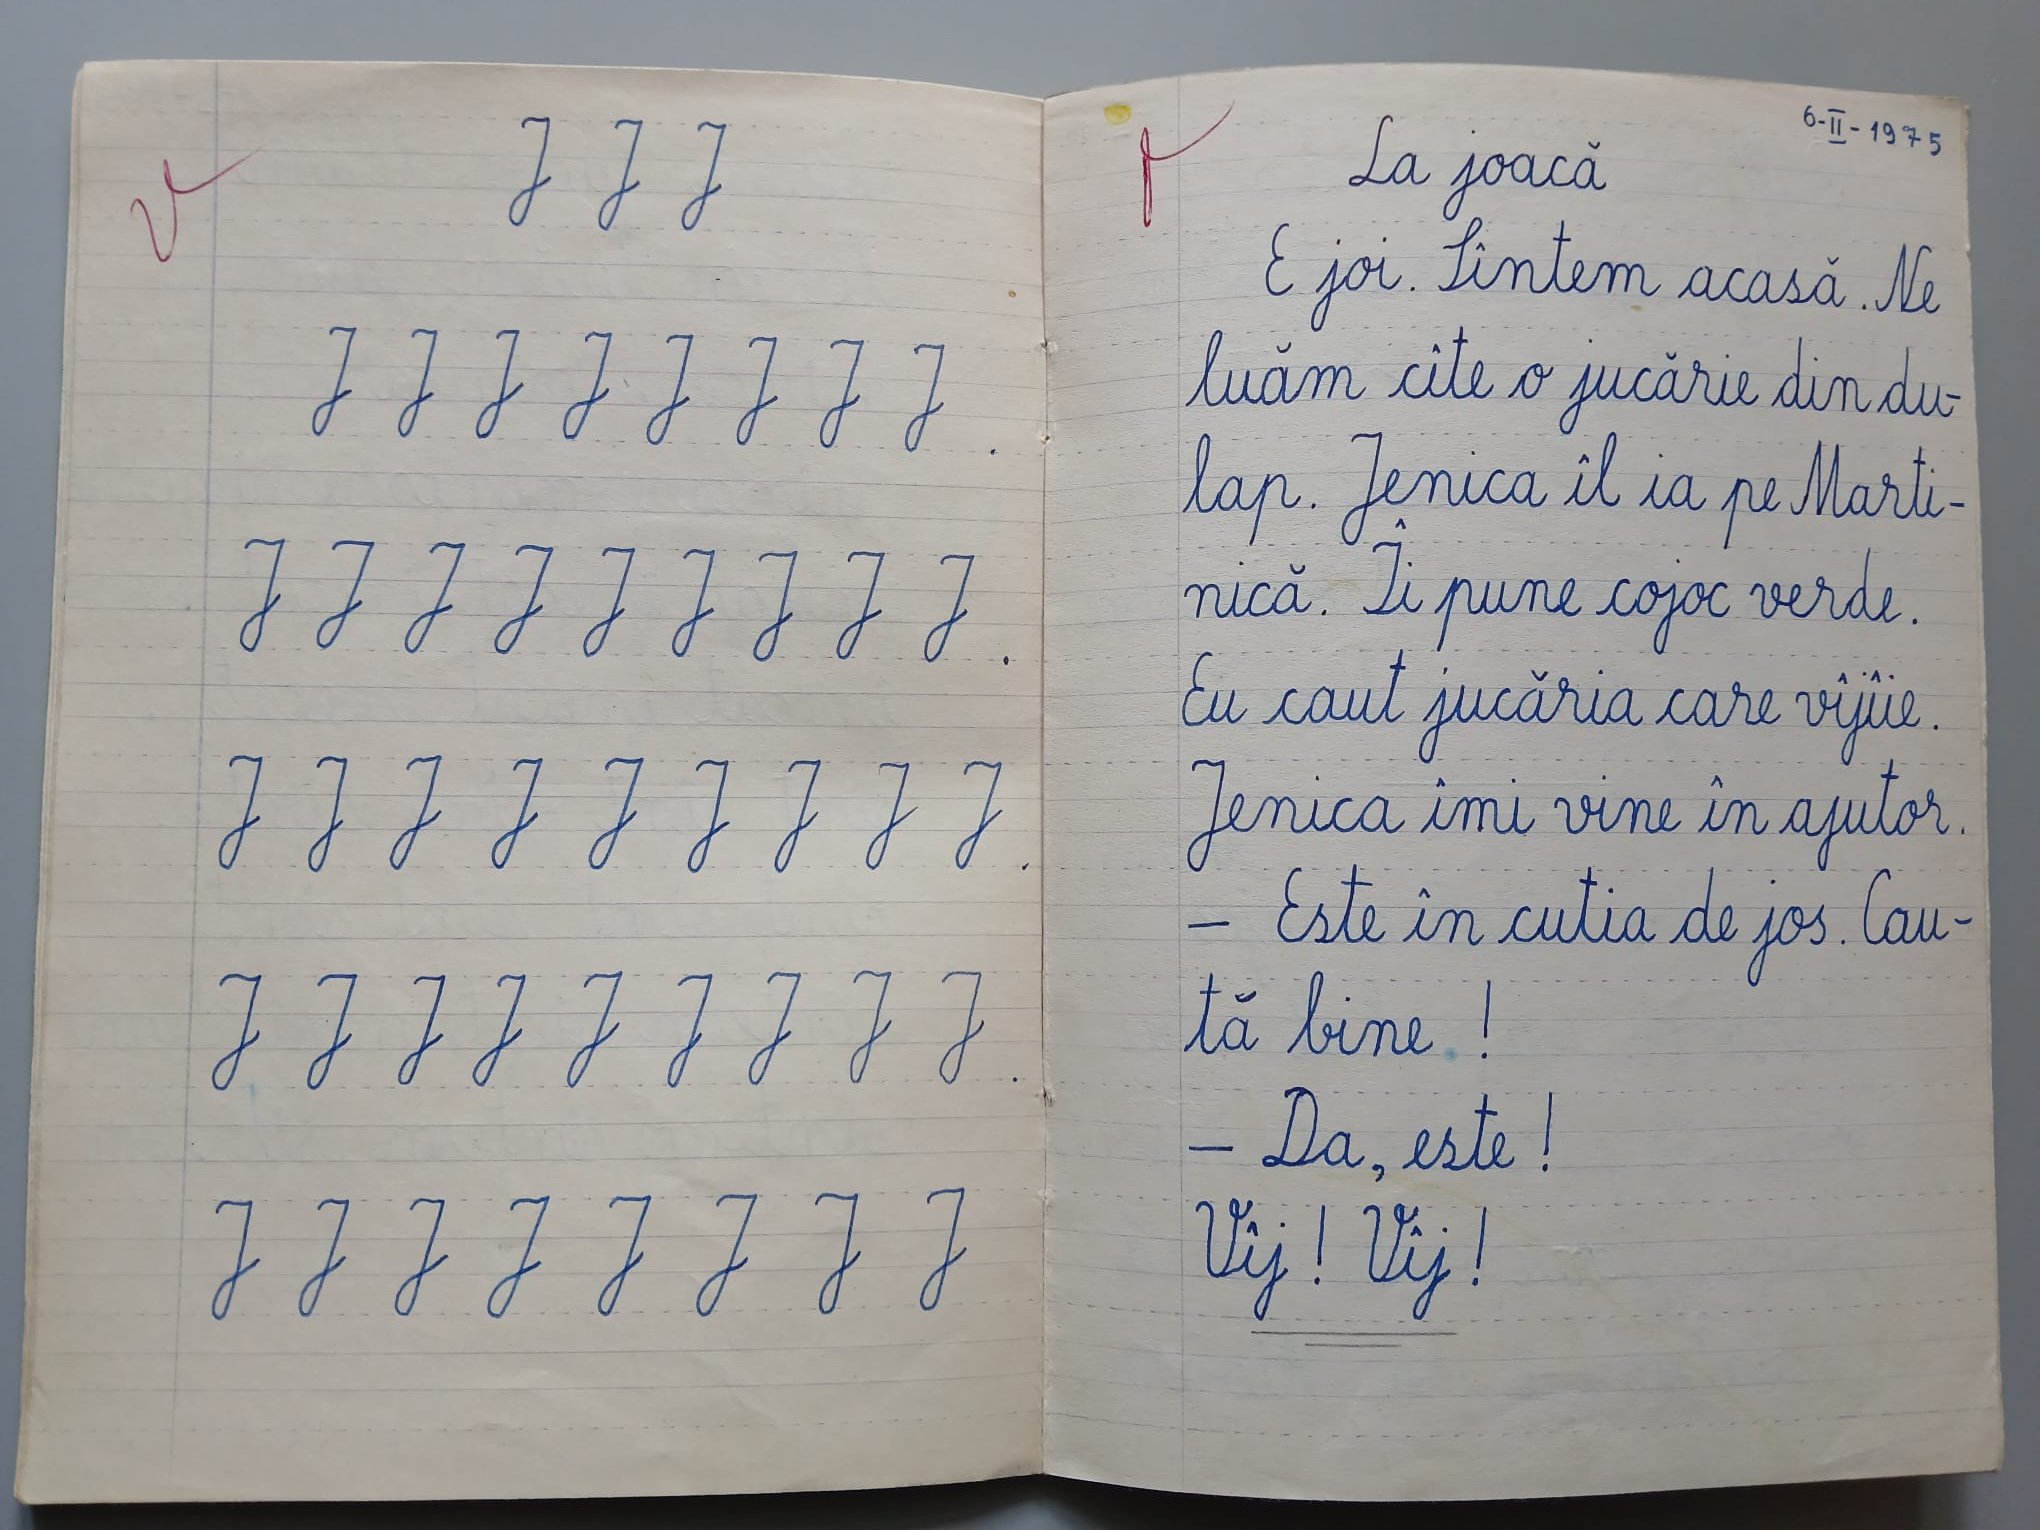 J J J
J J J J J J J J .
J J J J J J J J J .
J J J J J J J J J .
J J J J J J J J J .
J J J J J J J J
6-II-1975
La joacă
E joi. Sîntem acasă. Ne
luăm cîte o jucărie din du-
lap. Jenica îl ia pe Marti-
nică. Îi pune cojoc verde.
Eu caut jucăria care vîjîie.
Jenica îmi vine în ajutor.
— Este în cutia de jos. Cau-
tă bine !
— Da, este !
Vîj ! Vîj !